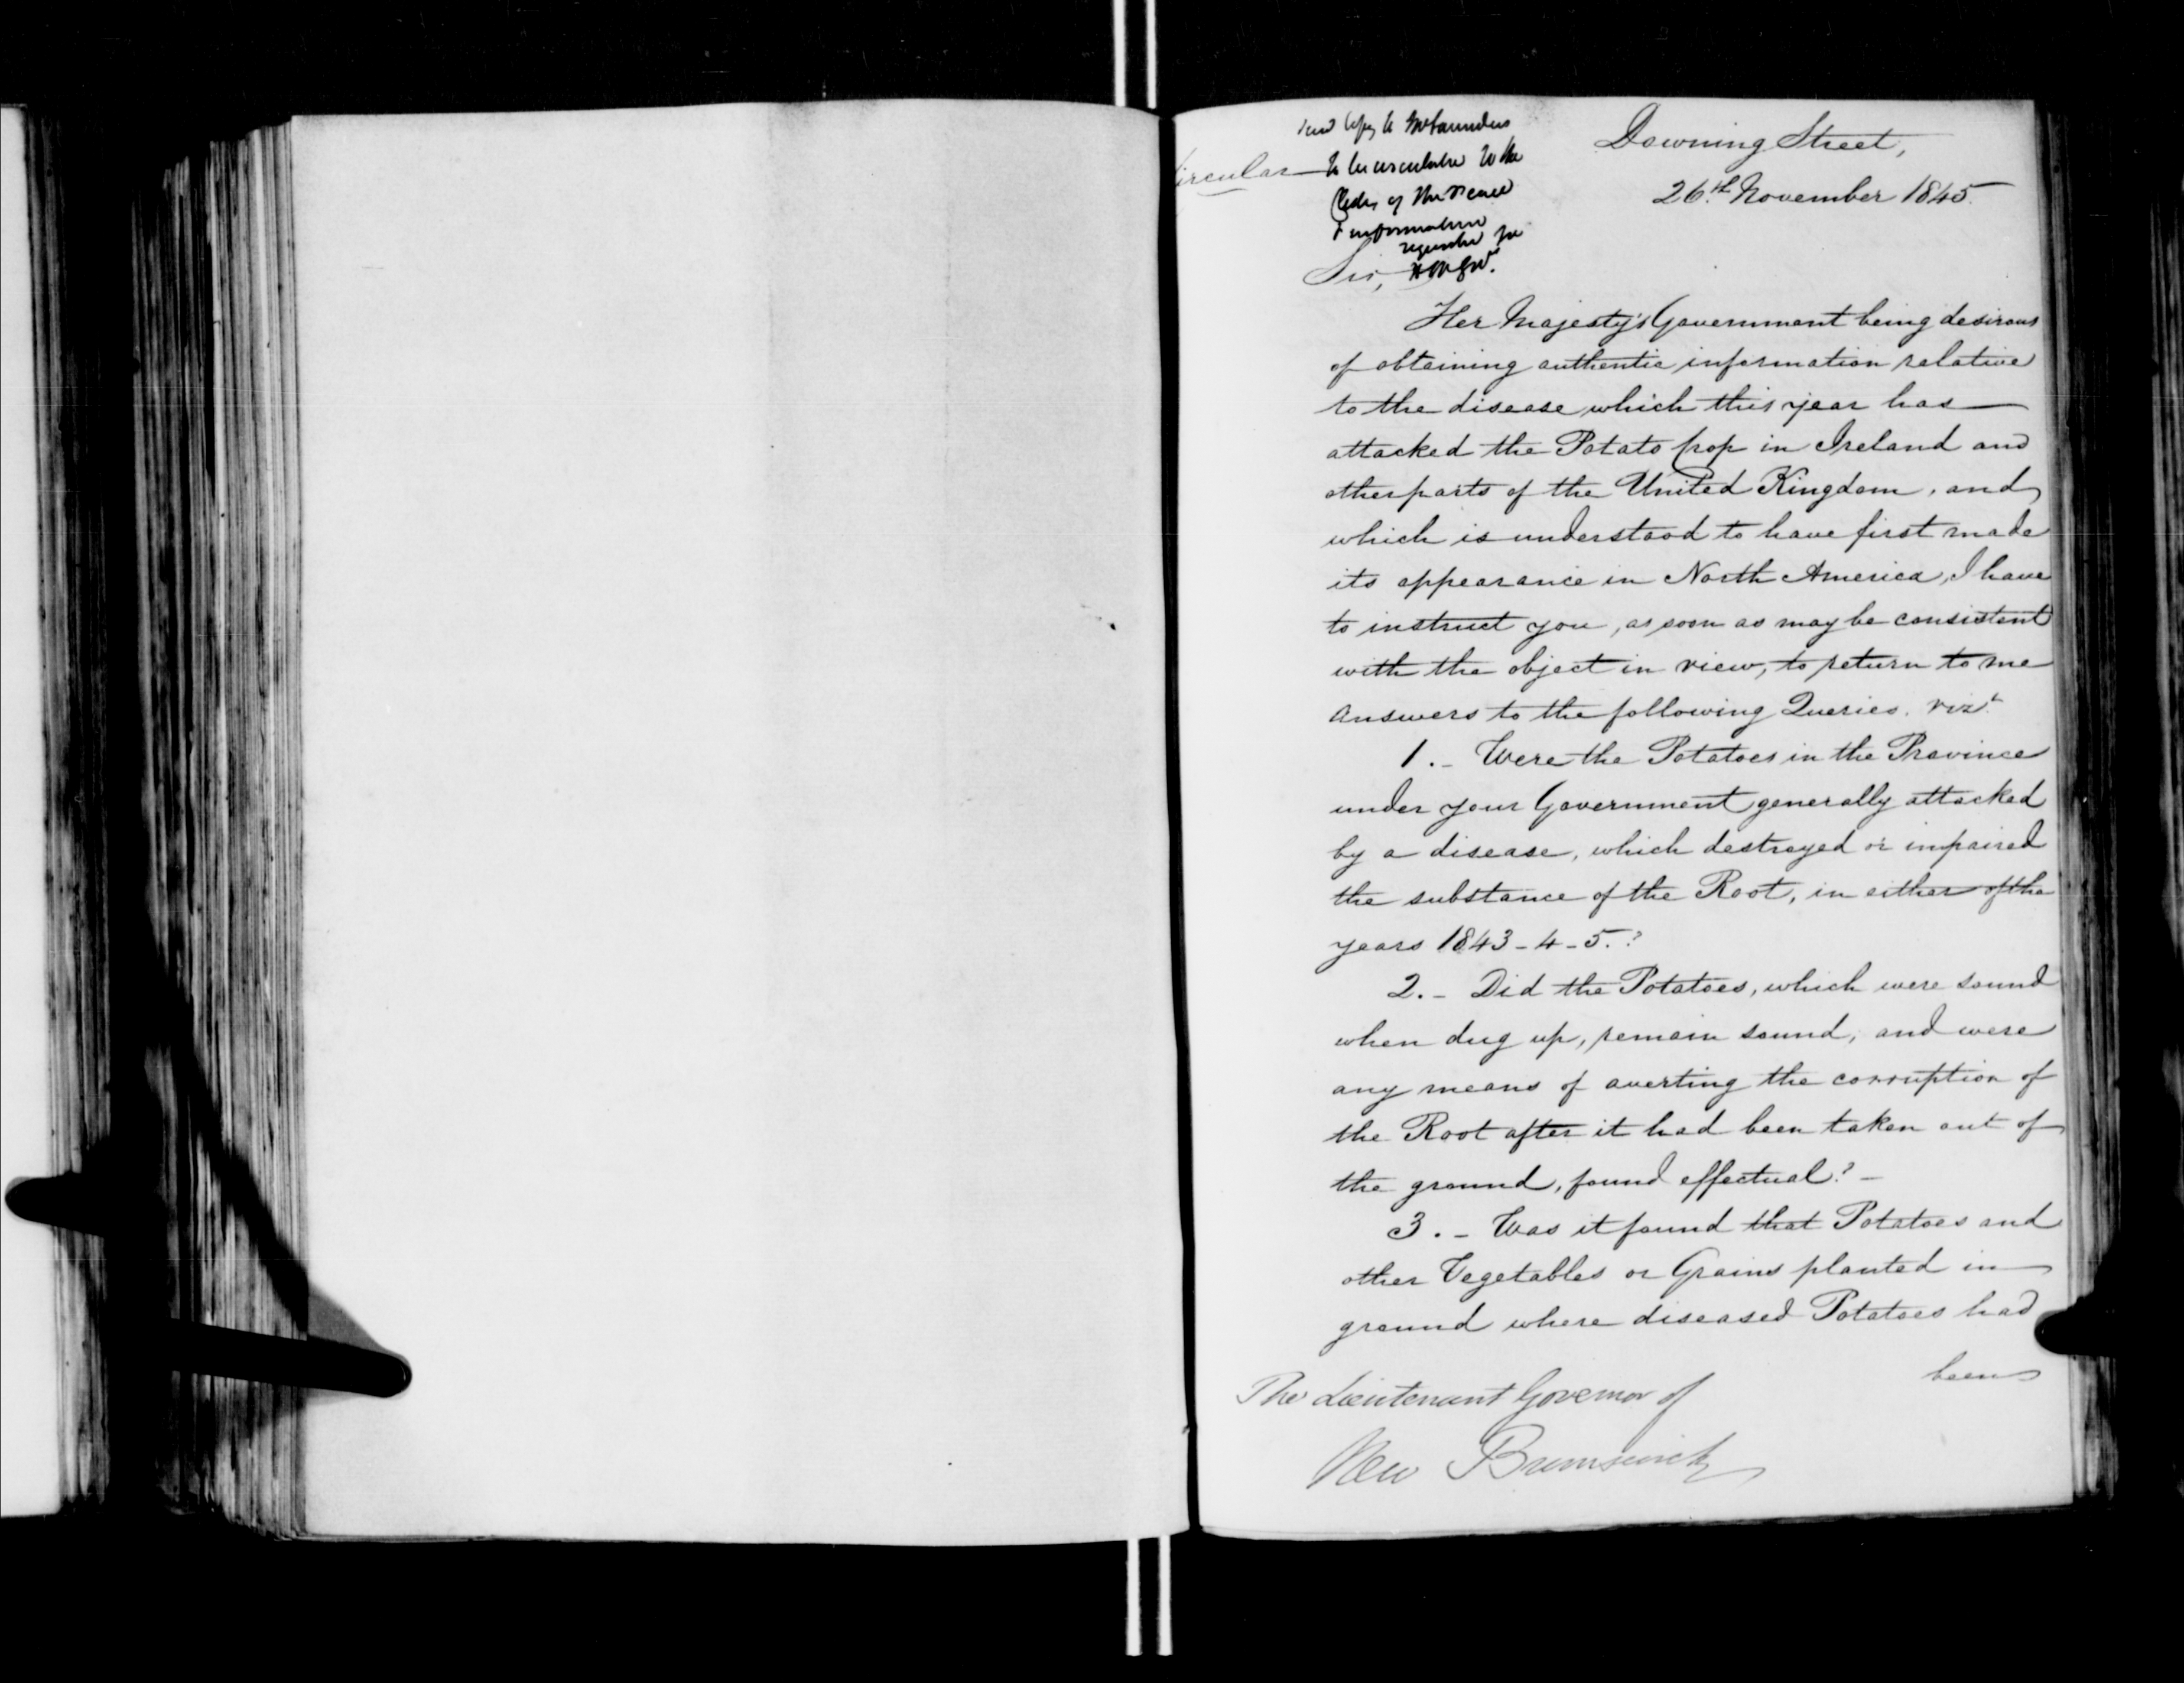 Send Copy to Mr Saunders
to be circulated to the
Clerks of the Peace
& information
required for
Circular
Downing Street,
26th November 1845.
Sir,
Her Majesty's Government being desirous
of obtaining authentic information relative
to the disease which this year has
attacked the Potato Crop in Ireland and
other parts of the United Kingdom, and
which is understood to have first made
its appearance in North America, I have
to instruct you, as soon as may be consistent
with the object in view, to return to me
answers to the following Queries. vizt.
1. - Were the Potatoes in the Province
under your Government generally attacked
by a disease, which destroyed or impaired
the substance of the Root, in either of the
years 1843-4-5.?
2. - Did the Potatoes, which were sound
when dug up, remain sound, and were
any means of averting the corruption of
the Root after it had been taken out of
the ground, found effectual? -
3. - Was it found that Potatoes and
other Vegetables or Grains planted in
ground where diseased Potatoes had
been
The Lieutenant Governor of
New Brunswick